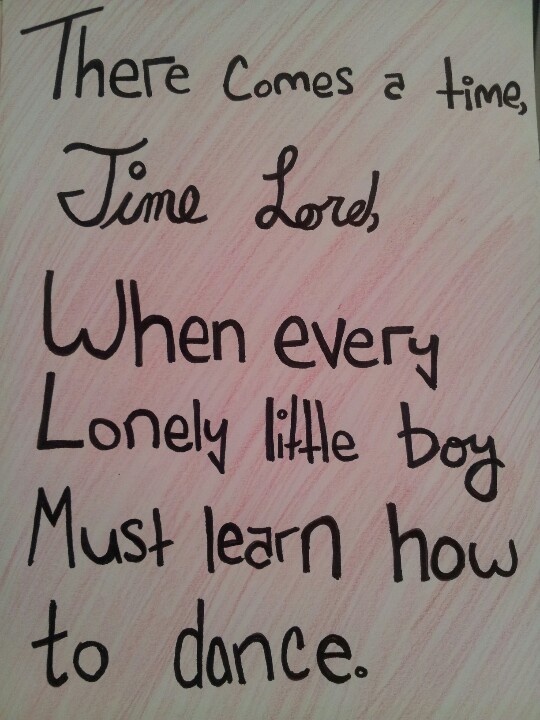 There comes a time,
Time Lord,
When every
Lonely little boy
Must learn how
to dance.